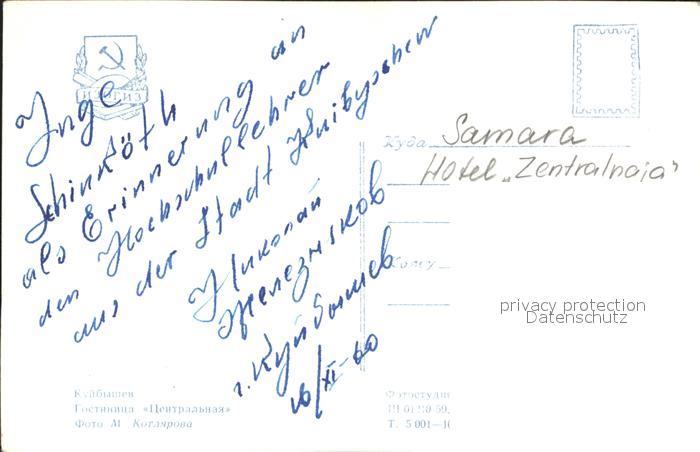 ИЗОГИЗ
Inge
Schinköth
als Erinnerung an
den Hochschullehrer
aus der Stadt Kuibyschew
Николай
Железняков
г. Куйбышев
16/XI-60
Куда
Samara
Hotel „Zentralnaja"
Кому
privacy protection
Datenschutz
Куйбышев
Гостиница «Центральная»
Фото М. Котлярова
Фотостудия
Т. 5 001—10